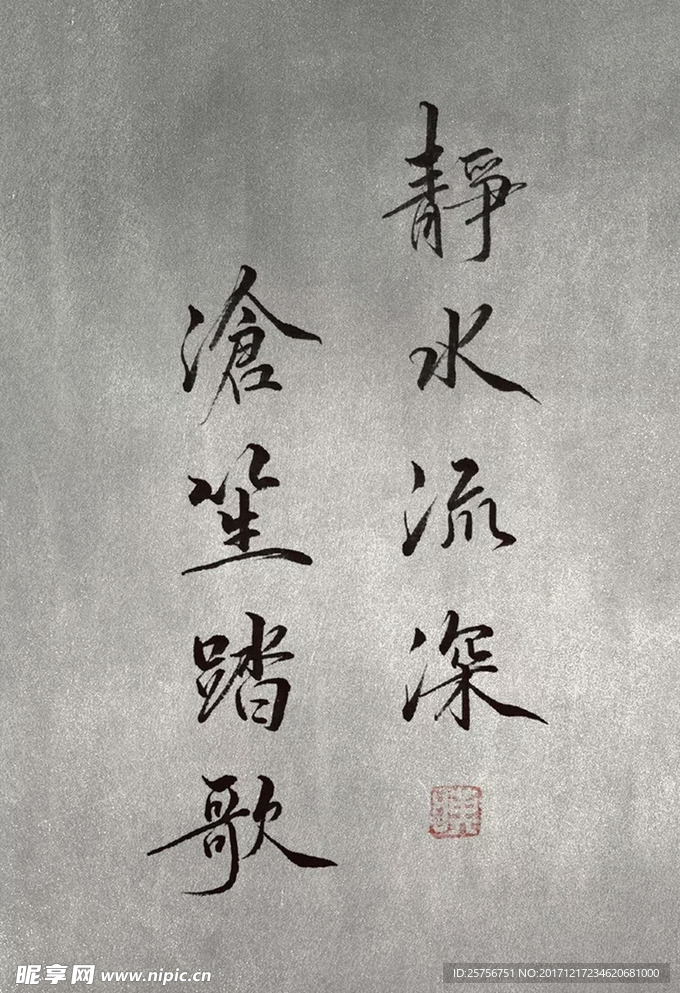 靜水流深
滄笙踏歌
昵享网 www.nipic.cn
ID:25756751 NO:20171217234620681000